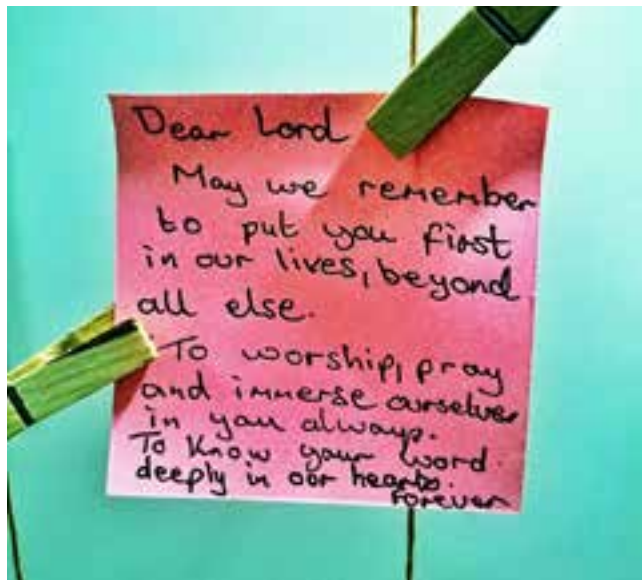 Dear Lord
May we remember
to put you first
in our lives, beyond
all else.
To worship, pray
and immerse ourselves
in you always.
To Know your word
deeply in our hearts.
Forever